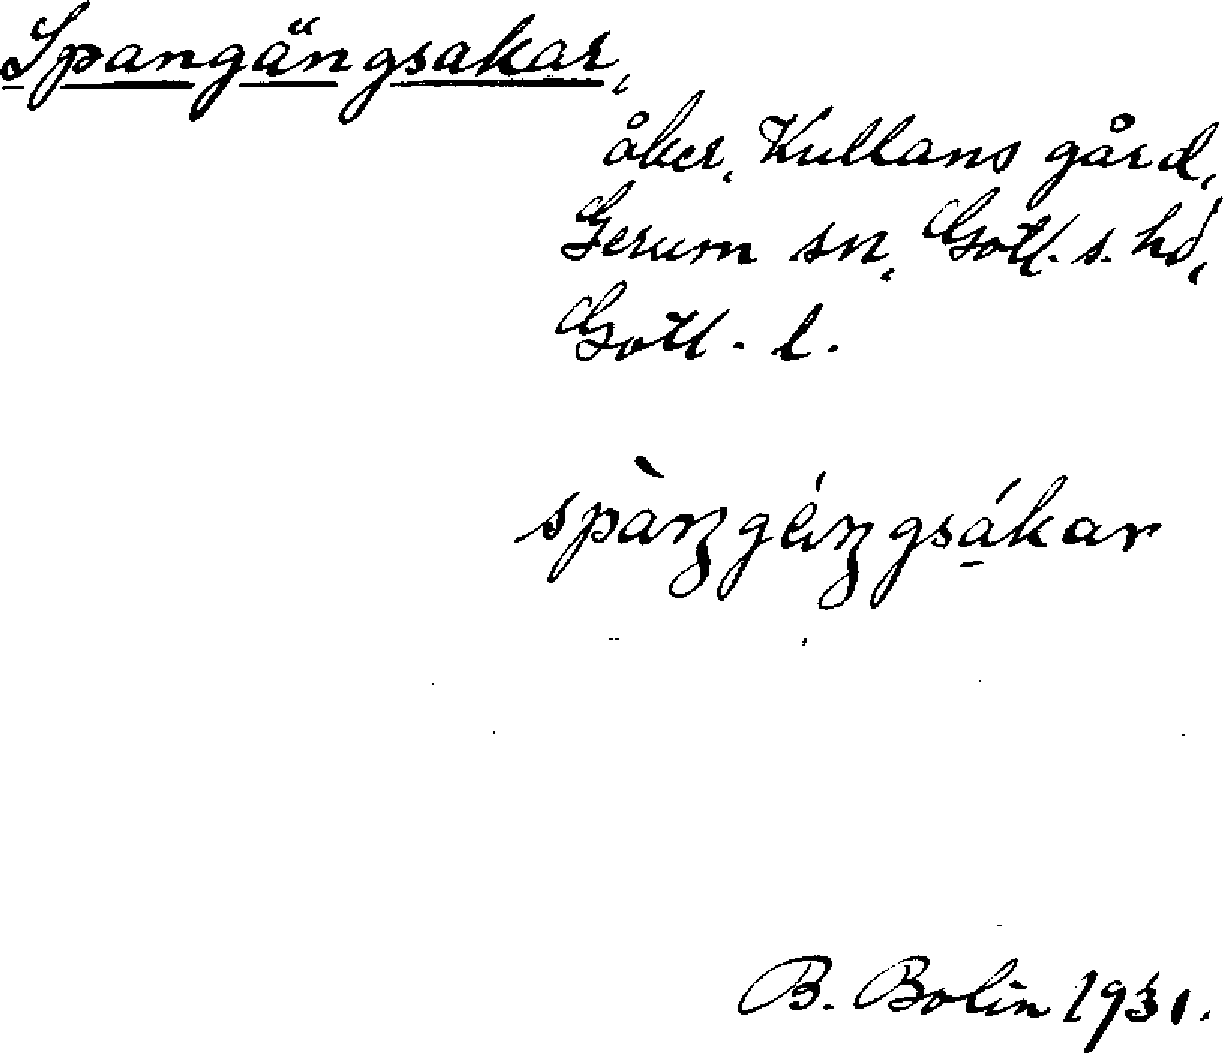 Spangängsakar,
åker, Kullans gård,
Gerum sn, Gotl. s. hd,
Gotl. l.
spàŋgéŋgsákar
B. Bolin 1931.